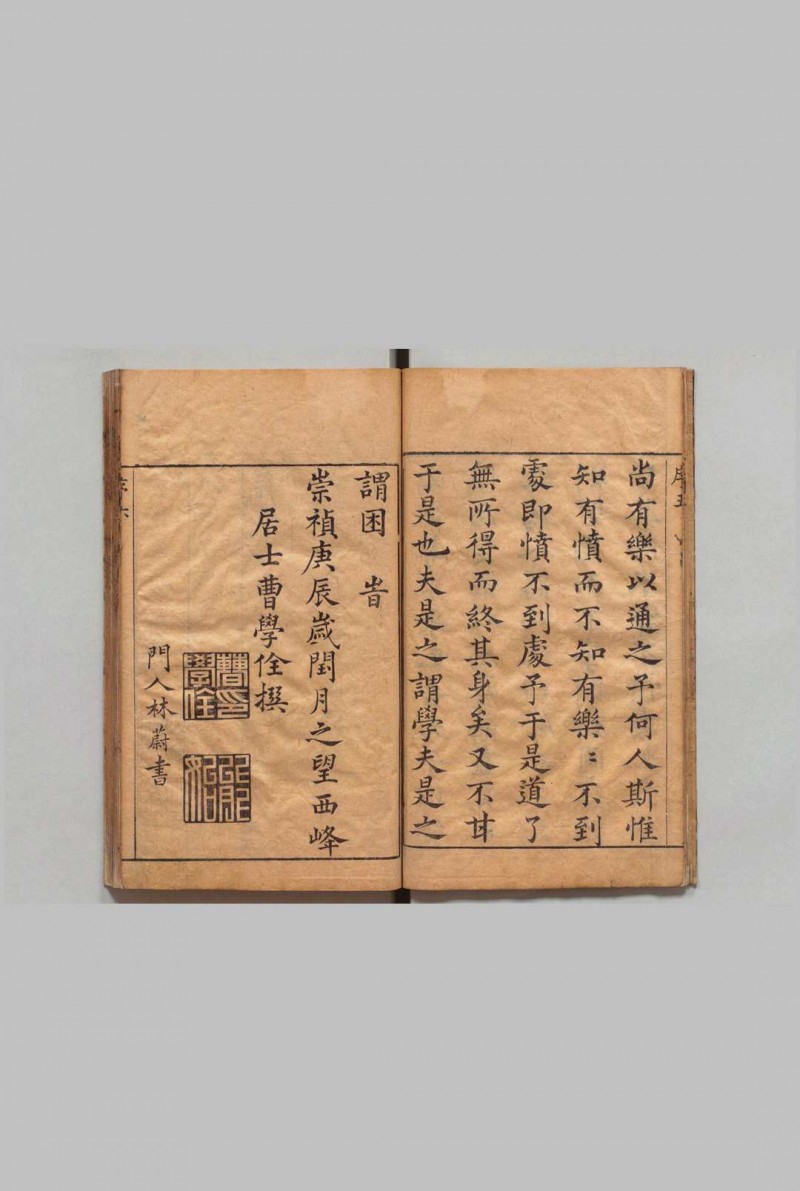 序五
尚有樂以通之予何人斯惟
知有憤而不知有樂〻不到
處即憤不到處予于是道了
無所得而終其身矣又不甘
于是也夫是之謂學夫是之
謂困 旹
崇禎庚辰歲閏月之望西峰
居士曹學佺撰
曹印學佺
能始
門人林蔚書
序六